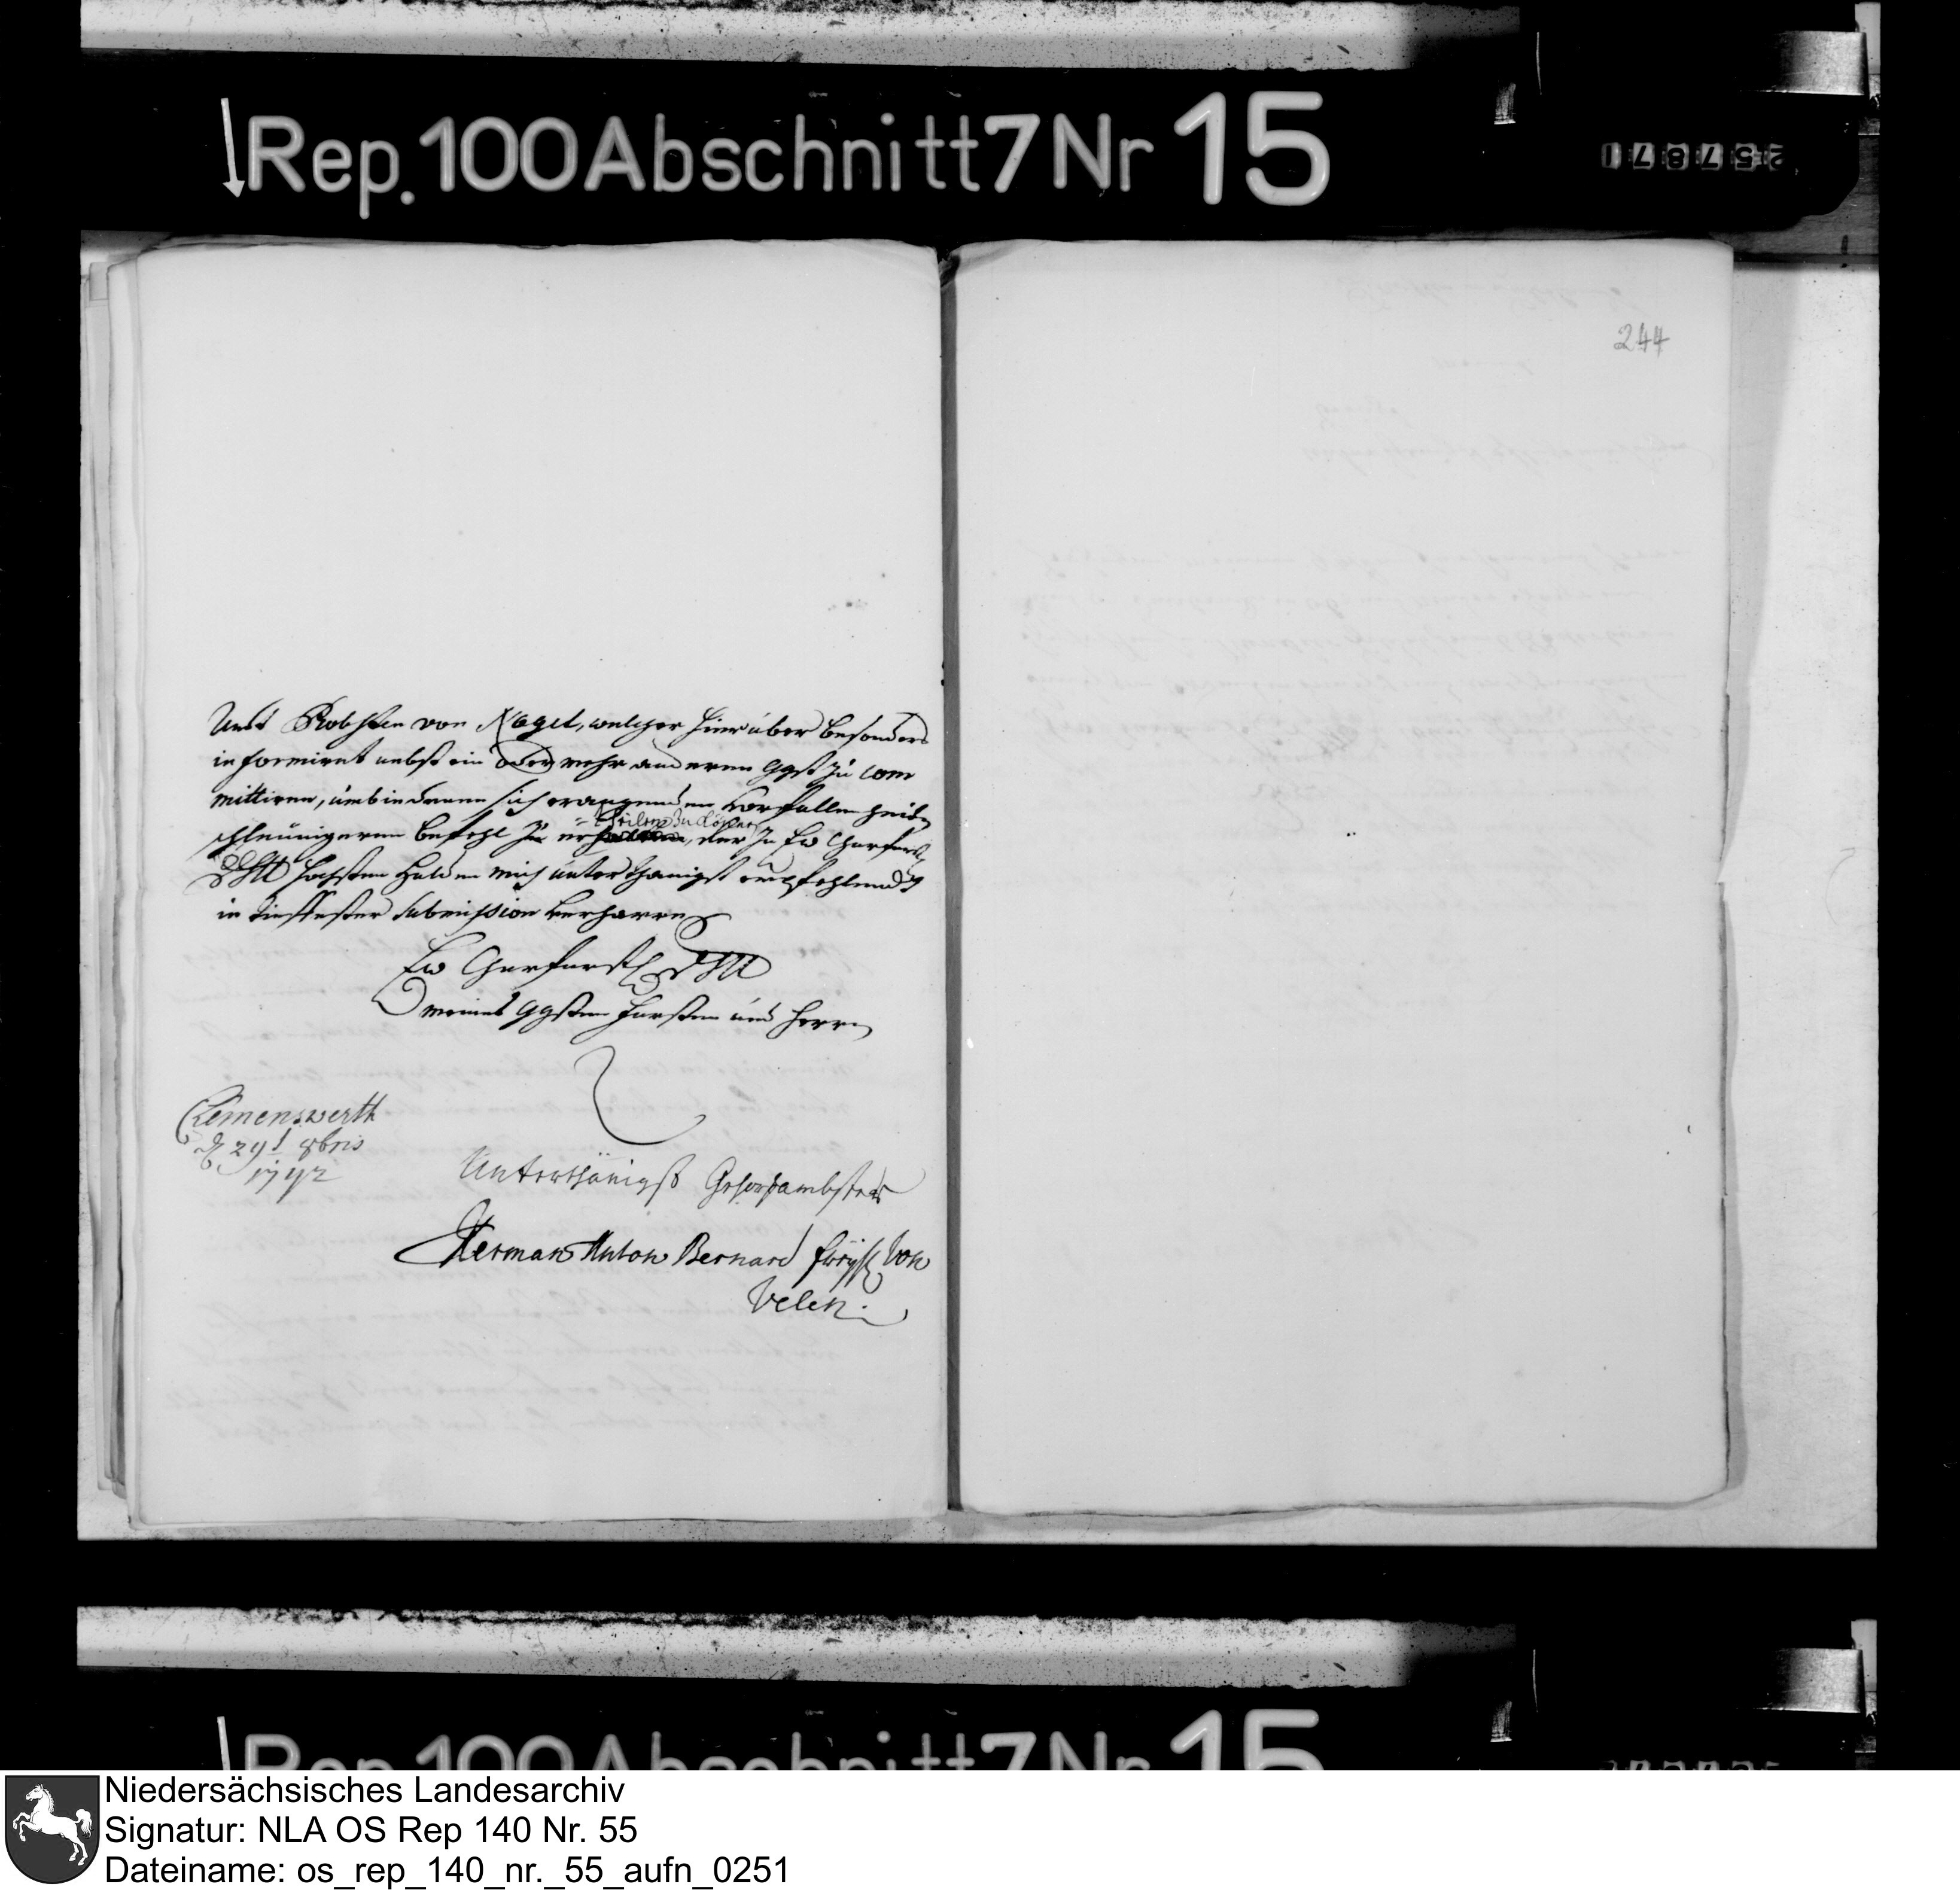 Rep.100Abschnitt7Nr 15
257871
244
Undt Probsten von Nagel, welcher hierüber besonders
informiret nebst ein oder mehr anderen ggst zu com
mittiren, umb in denen sich eraugenden Vorfallenheiten
schleunigeren befehl zu ertheilen zu können, der zu Ew Churfürstl
Dhtt höchsten Hulden mich unterthänigst empfehlend
in tieffester submission verharre
Ew Churfürstl Dhtt
meines ggsten Fürsten und Herrn
Clemenswerth
d 29t 8bris
1742
Unterthänigst Gehorsambster
Herman Anton Bernard freyh von
Velen.
Rep.100Abschnitt7Nr 15
Niedersächsisches Landesarchiv
Signatur: NLA OS Rep 140 Nr. 55
Dateiname: os_rep_140_nr._55_aufn_0251